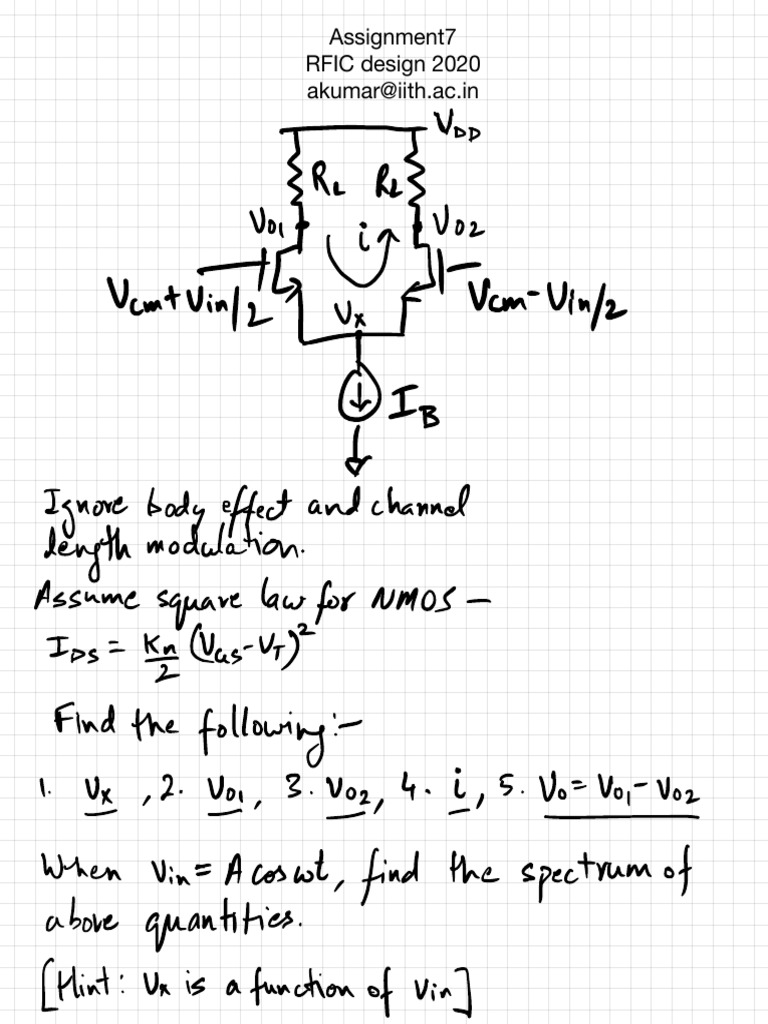 Assignment7
RFIC design 2020
akumar@iith.ac.in
VDD
RL RL
V01 i V02
Vcm+Vin/2 Vx Vcm-Vin/2
IB
Ignore body effect and channel
length modulation.
Assume square law for NMOS —
IDS = Kn/2 (VGS-VT)²
Find the following:-
1. Vx, 2. V01, 3. V02, 4. i, 5. V0 = V01 - V02
When Vin = A cos wt, find the spectrum of
above quantities.
[Hint: Vx is a function of Vin]